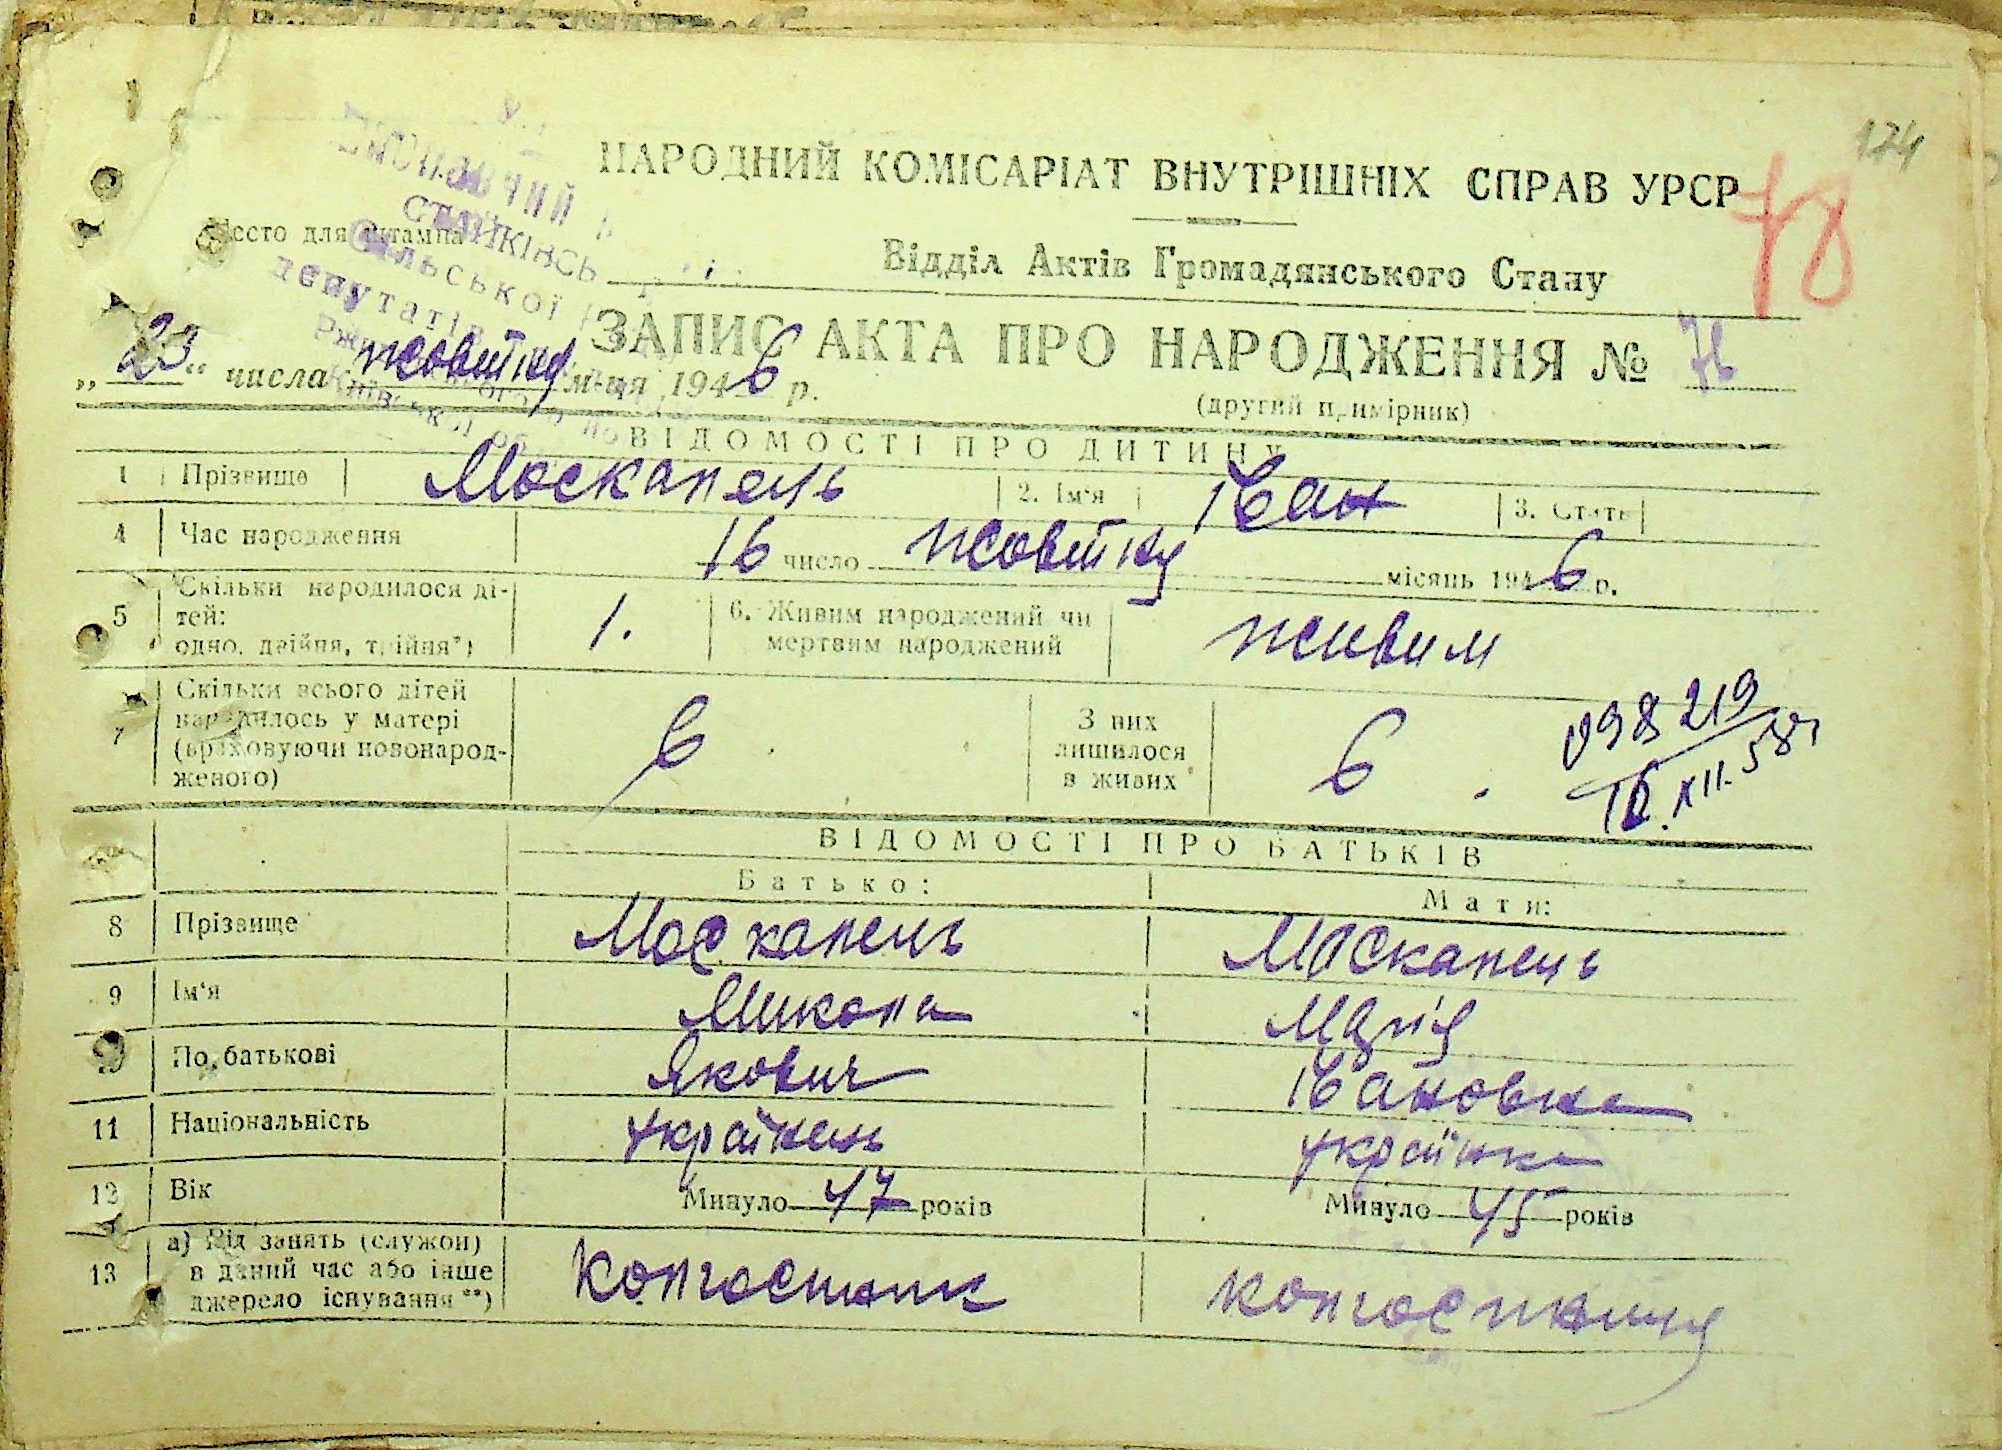 174
НАРОДНИЙ КОМІСАРІАТ ВНУТРІШНІХ СПРАВ УРСР
78
Место для штампа
Відділ Актів Громадянського Стану
ЗАПИС АКТА ПРО НАРОДЖЕННЯ №
„23“ числа жовтня м-ця 1946 р.
(другий примірник)
ВІДОМОСТІ ПРО ДИТИНУ
1 Прізвище Москапець 2. Ім'я Іван 3. Стать
4 Час народження 16 число жовтня місяць 1946 р.
5 Скільки народилося ді-
тей:
одно, двійня, трійня*)
1.
6. Живим народжений чи
мертвим народжений
живим
7 Скільки всього дітей
народилось у матері
(враховуючи новонарод-
женого)
6
З них
лишилося
в живих
6
098219
16.XII.58
ВІДОМОСТІ ПРО БАТЬКІВ
Батько: Мати:
8 Прізвище Москапець Москапець
9 Ім'я Микола Марія
По батькові Якович Івановна
11 Національність українець українка
12 Вік Минуло 47 років Минуло 45 років
13 а) Рід занять (служби)
в даний час або інше
джерело існування**)
колгоспник колгоспниця